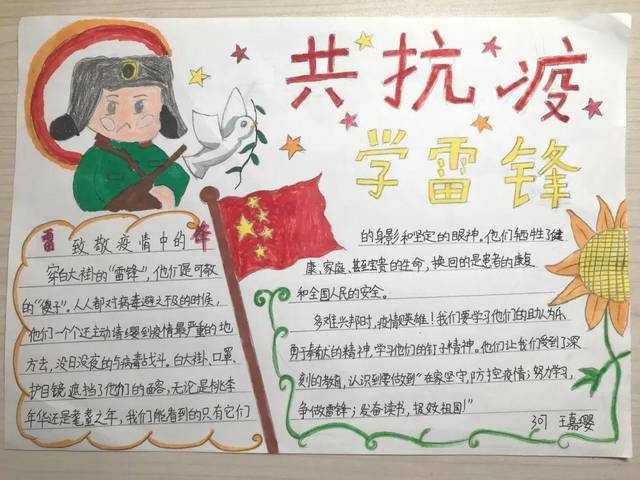 共抗疫
学雷锋
致敬疫情中的雷锋
穿白大褂的“雷锋”,他们是可敬
的“傻子”。人人都对病毒避之不及的时候,
他们一个个还主动请缨到疫情最严重的地
方去,没日没夜的与病毒战斗。白大褂、口罩、
护目镜遮挡了他们的面容,无论是桃李
年华还是耄耋之年,我们能看到的只有它们
的身影和坚定的眼神。他们牺牲了健
康、家庭、甚至宝贵的生命,换回的是患者的康复
和全国人民的安全。
多难兴邦时,疫情现英雄!我们要学习他们的助人为乐
勇于奉献的精神,学习他们的钉子精神。他们让我们受到了深
刻的教育,认识到要做到“在家坚守,防控疫情;努力学习,
争做雷锋;发奋读书,报效祖国!”
307 王嘉璎